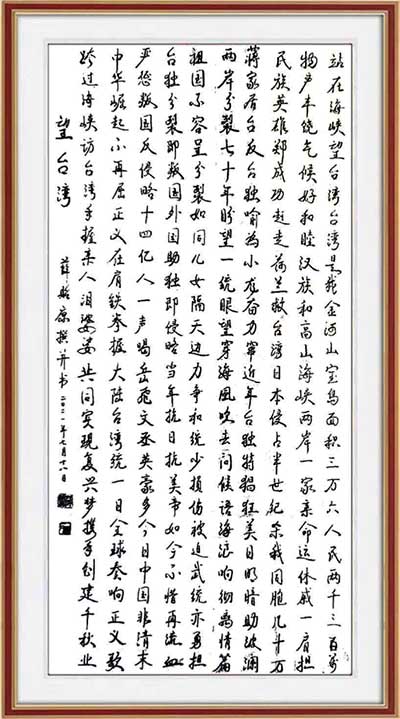 站在海峡望台湾台湾是我金河山宝岛面积三万六人民两千三百万
物产丰饶气候好和睦汉族和高山海峡两岸一家亲命运休戚一肩担
民族英雄郑成功赶走荷兰救台湾日本侵占半世纪杀我同胞几十万
蒋家有台反台独喻为小龙奋力窜近年台独特猖狂美日明暗助波澜
两岸分裂七十年盼望一统眼望穿海风吹去问候语海浪响彻离情篇
祖国不容呈分裂如同儿女隔天边力争和统少损伤被迫武统亦勇担
台独分裂即叛国外国助独即侵略当年抗日抗美帝如今不惜再流血
严惩叛国反侵略十四亿人一声喝岳飞文丞英豪多今日中国非清末
中华崛起不再屈正义在肩铁拳握大陆台湾统一日全球奏响正义歌
跨过海峡访台湾手握亲人泪婆娑共同实现复兴梦携手创建千秋业
望台湾
撰并书二〇二一年七月十八日